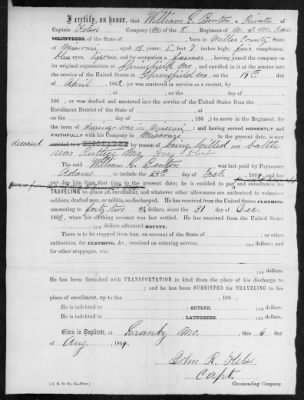 I certify, on honor, that William C. Benton a Private
of Captain Kelso's Company (H) of the 8 Regiment of M.S.M. Cav
VOLUNTEERS, of the State of , born in Miller County, State
of Missouri, aged 18 years; 5 feet 7 inches high; fair complexion,
blue eyes, hair, and by occupation a Farmer, having joined the company on
its original organization at Springfield Mo., and enrolled in it at the muster into
the service of the United States at Springfield Mo., on the 18th day
of April, 1862, (or was mustered in service as a recruit, by
, at , on the day of ,
186 , or was drafted and mustered into the service of the United States from the
Enrollment District of the State of , on the
day of , 186 ,) to serve in the Regiment, for
the term of during war in Missouri; and having served HONESTLY and
FAITHFULLY with his Company in Missouri to the present date, is now
entitled to a DISCHARGE by reason of being killed in battle
The said William C. Benton was last paid by Paymaster
Adams to include the 29th day of Feb., 1864, and has
pay due him from that time to the present date; he is entitled to pay and subsistence for
TRAVELING to place of enrolment, and whatever other allowances are authorized to volunteer
soldiers, drafted men, or militia, so discharged. He has received from the United States CLOTHING
amounting to forty two dollars, since the 31 day of Dec.
1863, when his clothing account was last settled. He has received from the United States
dollars advanced BOUNTY.
There is to be stopped from him, on account of the State of , or other
authorities, for CLOTHING, &c., received on entering service, dollars;
and for other stoppages, viz:
dollars.
He has been furnished with TRANSPORTATION in kind from the place of his discharge to
; and he has been SUBSISTED for TRAVELING to his
place of enrolment, up to the , 186 .
He is indebted to , SUTLER, dollars.
He is indebted to , LAUNDRESS, dollars.
Given in Duplicate, at Granby Mo., this 6 day
of Aug, 1864.
John R. Kelso
Capt.
Commanding Company.